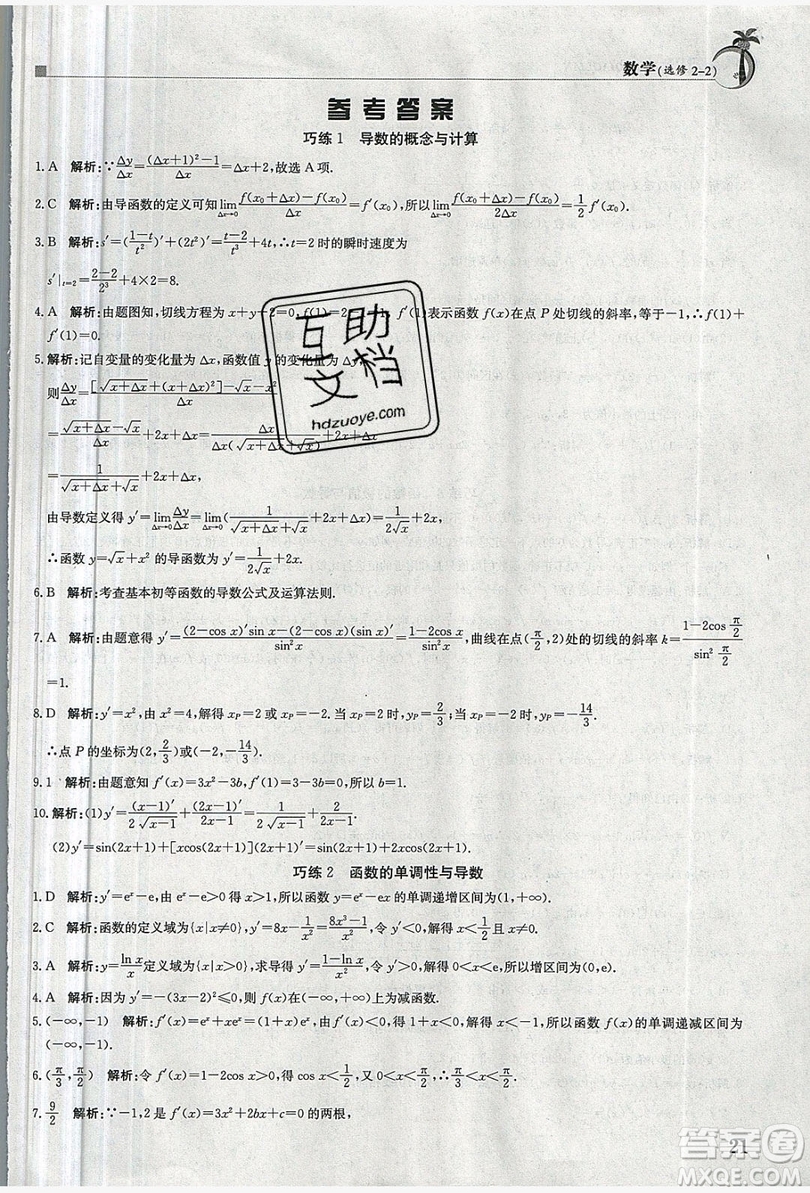 数学(选修 2-2)
参考答案
巧练 1 导数的概念与计算
1. A 解析:∵Δy/Δx=((Δx+1)²-1)/Δx=Δx+2,故选 A 项.
2. C 解析:由导函数的定义可知lim(Δx→0) (f(x₀+Δx)-f(x₀))/Δx=f′(x₀),所以lim(Δx→0) (f(x₀+Δx)-f(x₀))/(2Δx)=1/2 f′(x₀).
3. B 解析:s′=((1-t)/t²)′+(2t²)′=(t-2)/t³+4t,∴t=2 时的瞬时速度为
s′|t=2=(2-2)/2³+4×2=8.
4. A 解析:由题图知,切线方程为 x+y-2=0,f(1)=2-1=1,f′(1)表示函数 f(x)在点 P 处切线的斜率,等于-1,∴f(1)+
f′(1)=0.
5. 解析:记自变量的变化量为 Δx,函数值 y 的变化量为 Δy,
则Δy/Δx=[√(x+Δx)+(x+Δx)²]-
=(√(x+Δx)-√x)/Δx+2x+Δx=Δx/(Δx(√(x+Δx)+√x))+2x+Δx
=1/(√(x+Δx)+√x)+2x+Δx,
由导数定义得 y′=lim(Δx→0) Δy/Δx=lim(Δx→0)(1/(√(x+Δx)+√x)+2x+Δx)=1/(2√x)+2x,
∴函数 y=√x+x² 的导函数为 y′=1/(2√x)+2x.
6. B 解析:考查基本初等函数的导数公式及运算法则.
7. A 解析:由题意得 y′=((2-cos x)′sin x-(2-cos x)(sin x)′)/sin²x=(1-2cos x)/sin²x,曲线在点(π/2,2)处的切线的斜率 k=(1-2cos π/2)/(sin² π/2)
=1.
8. D 解析:y′=x²,由 x²=4,解得 xP=2 或 xP=-2. 当 xP=2 时,yP=2/3;当 xP=-2 时,yP=-14/3.
∴点 P 的坐标为(2,2/3)或(-2,-14/3).
9. 1 解析:由题意知 f′(x)=3x²-3b,f′(1)=3-3b=0,所以 b=1.
10. 解析:(1)y′=(x-1)′/(2√(x-1))+(2x-1)′/(2x-1)=1/(2√(x-1))+2/(2x-1).
(2)y′=sin(2x+1)+[xcos(2x+1)](2x+1)′=sin(2x+1)+2xcos(2x+1).
巧练 2 函数的单调性与导数
1. D 解析:y′=eˣ-e,eˣ-e>0 得 x>1,所以函数 y=eˣ-ex 的单调递增区间为(1,+∞).
2. C 解析:函数的定义域为{x|x≠0},y′=8x-1/x²=(8x³-1)/x²<0,解得 x<1/2 且 x≠0.
3. A 解析:y=ln x/x 定义域为{x|x>0},求导得 y′=(1-ln x)/x²>0,解得 0<x<e,单调递增区间为(0,e).
4. A 解析:因为 y′=-(3x-2)²≤0,所以 f(x)在(-∞,+∞)上为减函数.
5. (-∞,-1) 解析:f′(x)=eˣ+xeˣ=eˣ(x+1),由 f′(x)<0,得 x<-1,所以函数 f(x)的单调递减区间为
(-∞,-1).
6. (π/3,π/2) 解析:令 f′(x)=1-2cos x>0,则 cos x<1/2,又 x∈(0,π/2),解得π/3<x<π/2.
7. 9/2 解析:∵-1,2 是 f′(x)=3x²+2bx+c=0 的两根,
21
互助文档
hdzuoye.com
答案圈
MXQE.COM